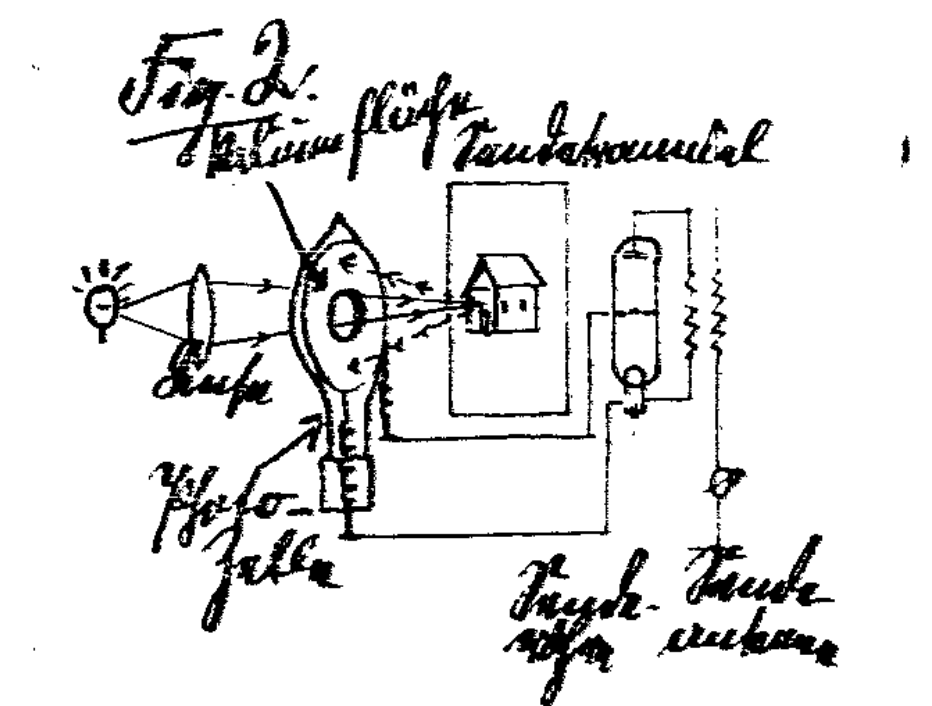 Fig. 2.
Kaliumfläche
Sendetrommel
Linse
Photo-
zelle
Sende-
röhre
Sende
antenne